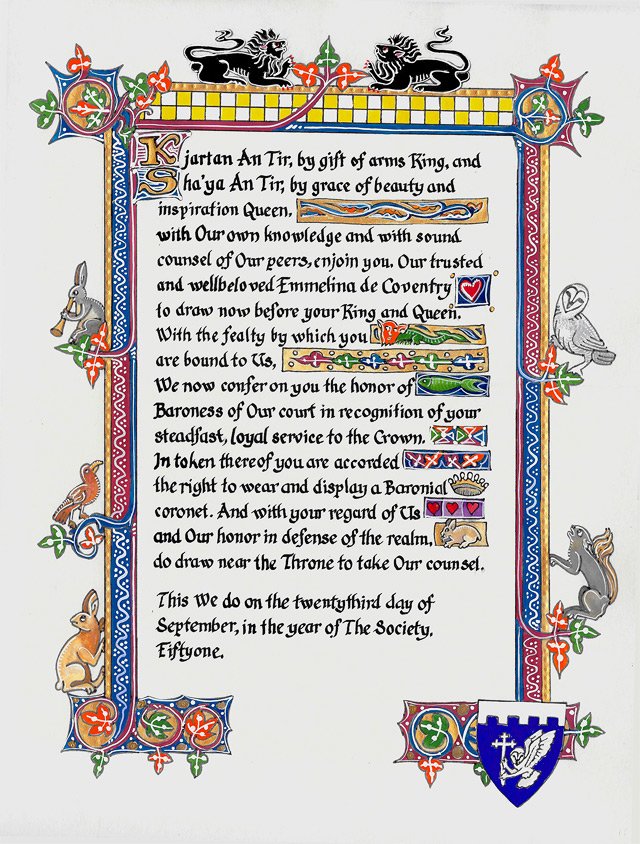 Kjartan An Tir, by gift of arms King, and
Sha'ya An Tir, by grace of beauty and
inspiration Queen,
with Our own knowledge and with sound
counsel of Our peers, enjoin you, Our trusted
and wellbeloved Emmelina de Coventry
to draw now before your King and Queen.
With the fealty by which you
are bound to Us,
We now confer on you the honor of
Baroness of Our court in recognition of your
steadfast, loyal service to the Crown.
In token thereof you are accorded
the right to wear and display a Baronial
coronet. And with your regard of Us
and Our honor in defense of the realm,
do draw near the Throne to take Our counsel.
This We do on the twentythird day of
September, in the year of The Society,
Fiftyone.